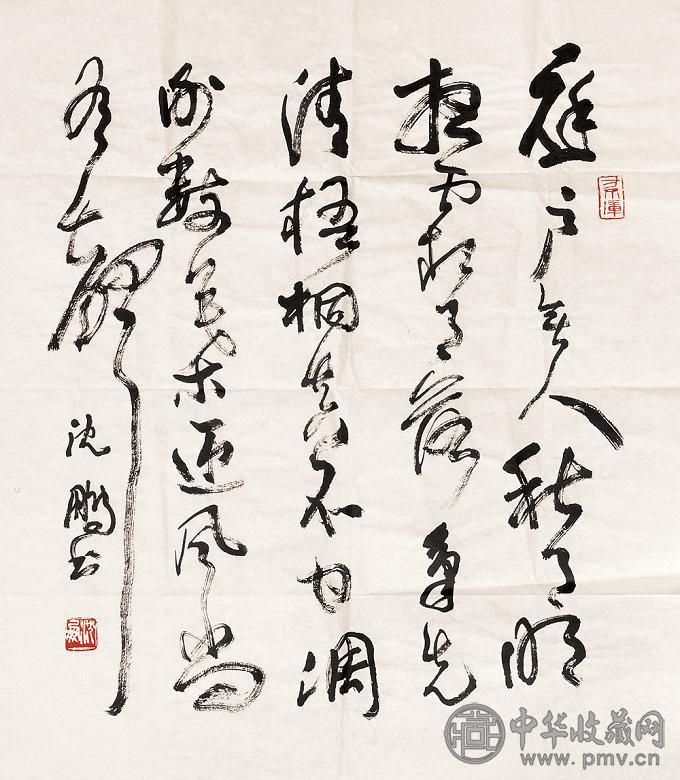 庭户无人秋月明
夜霜欲落气先
清梧桐真不甘凋
谢数叶迎风尚
有声
沈鹏书
中华收藏网
www.pmv.cn